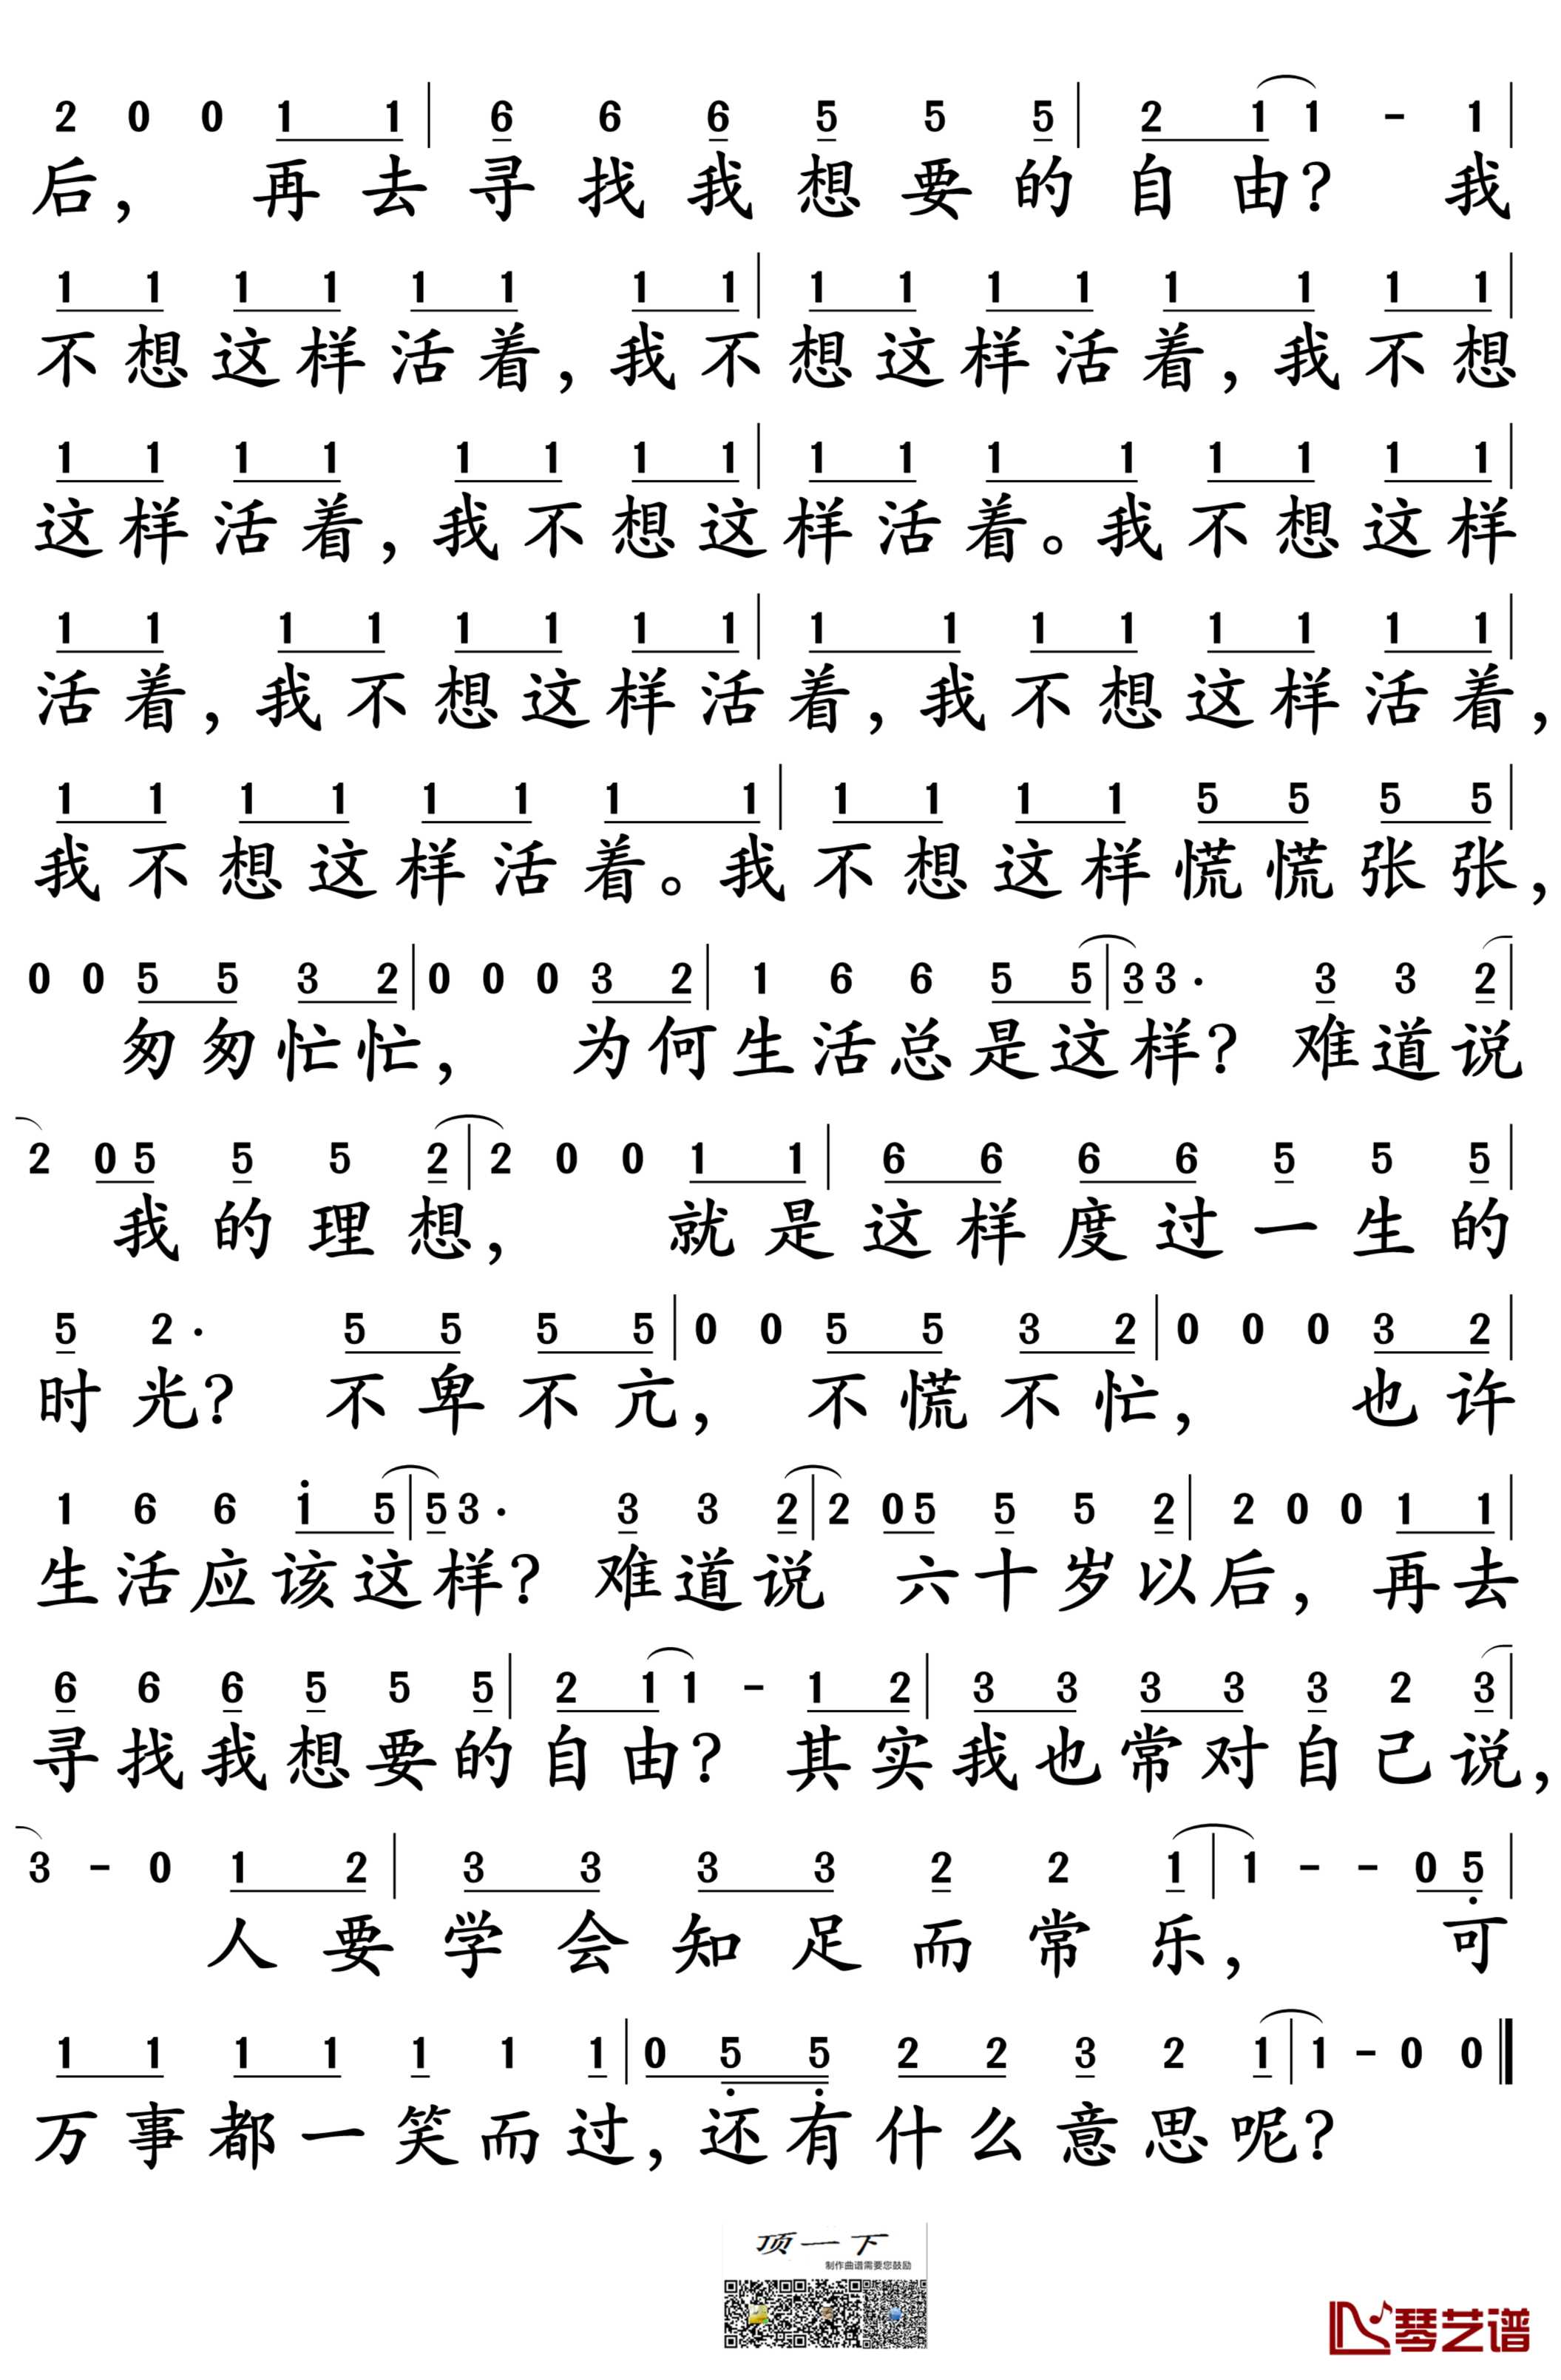 2 0 0 1 1 | 6 6 6 5 5 5 | 2 1 1 - 1 |
后， 再去寻找我想要的自由？ 我
1 1 1 1 1 1 1 1 | 1 1 1 1 1 1 1 1 |
不想这样活着，我不想这样活着，我不想
1 1 1 1 1 1 1 1 | 1 1 1 1 1 1 1 1 |
这样活着，我不想这样活着。我不想这样
1 1 1 1 1 1 1 1 | 1 1 1 1 1 1 1 1 |
活着，我不想这样活着，我不想这样活着，
1 1 1 1 1 1 1 1 | 1 1 1 1 5 5 5 5 |
我不想这样活着。我不想这样慌慌张张，
0 0 5 5 3 2 | 0 0 0 3 2 | 1 6 6 5 5 | 3 3· 3 3 2 |
匆匆忙忙， 为何生活总是这样？ 难道说
2 0 5 5 5 2 | 2 0 0 1 1 | 6 6 6 6 5 5 5 |
我的理想， 就是这样度过一生的
5 2· 5 5 5 5 | 0 0 5 5 3 2 | 0 0 0 3 2 |
时光？ 不卑不亢， 不慌不忙， 也许
1 6 6 i 5 | 5 3· 3 3 2 | 2 0 5 5 5 2 | 2 0 0 1 1 |
生活应该这样？ 难道说 六十岁以后，再去
6 6 6 5 5 5 | 2 1 1 - 1 2 | 3 3 3 3 3 2 3 |
寻找我想要的自由？ 其实我也常对自己说，
3 - 0 1 2 | 3 3 3 3 2 2 1 | 1 - - 0 5̣ |
人要学会知足而常乐， 可
1 1 1 1 1 1 1 | 0 5̣ 5̣ 2 2 3 2 1 | 1 - 0 0 ‖
万事都一笑而过，还有什么意思呢？
顶一下
制作曲谱需要您鼓励
琴艺谱